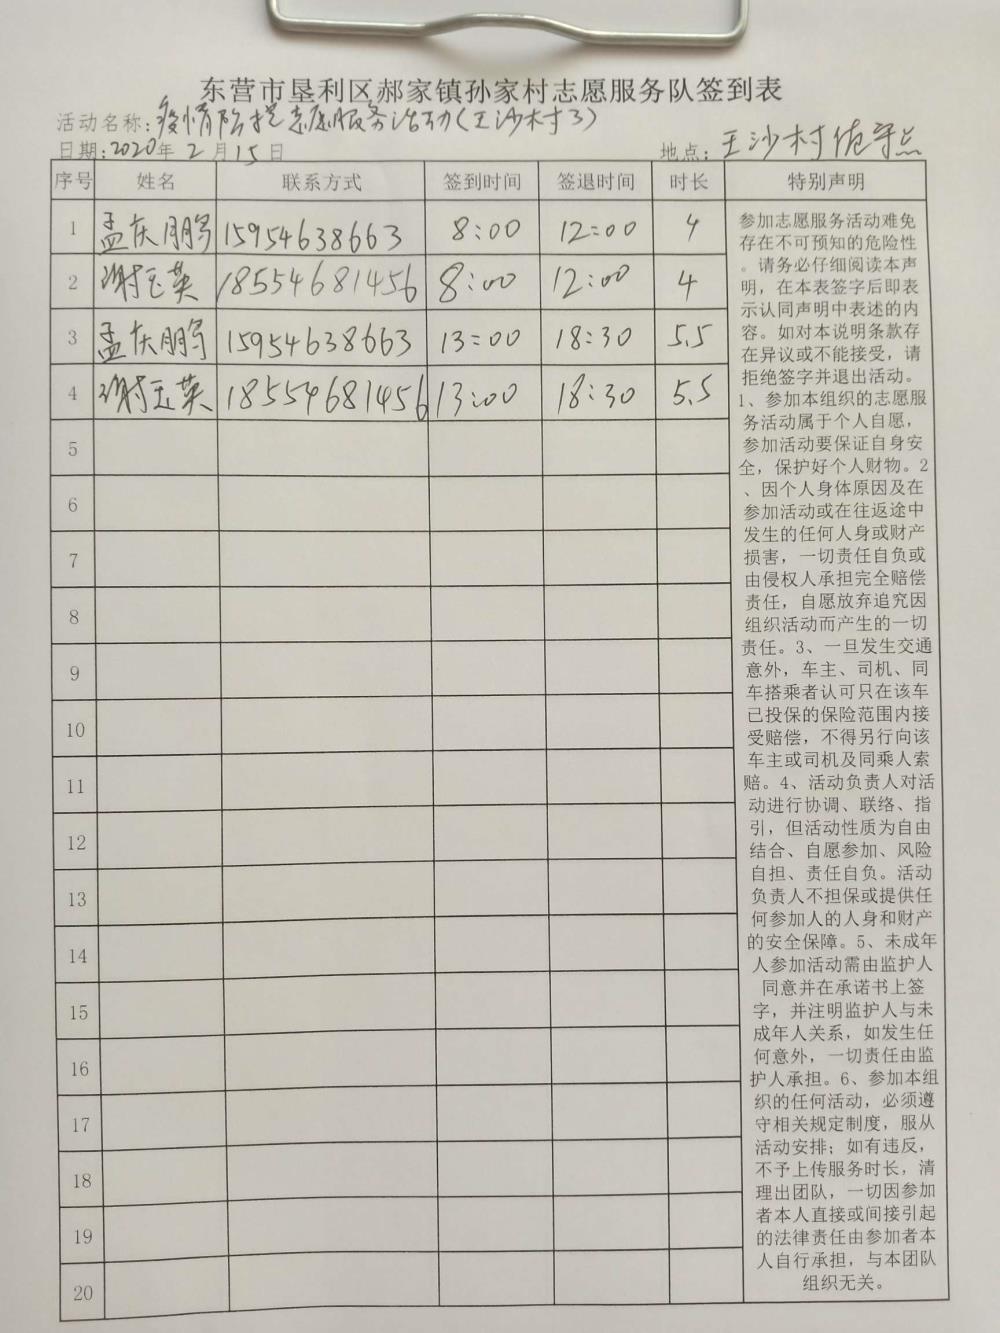 东营市垦利区郝家镇孙家村志愿服务队签到表
活动名称:疫情防控志愿服务活动(王沙村3)
日期:2020年2月15日 地点:王沙村值守点
序号 姓名 联系方式 签到时间 签退时间 时长 特别声明
1 孟庆鹏 15954638663 8:00 12:00 4
2 谢玉英 18554681456 8:00 12:00 4
3 孟庆鹏 15954638663 13:00 18:30 5.5
4 谢玉英 18554681456 13:00 18:30 5.5
5
6
7
8
9
10
11
12
13
14
15
16
17
18
19
20
参加志愿服务活动难免
存在不可预知的危险性
。请务必仔细阅读本声
明，在本表签字后即表
示认同声明中表述的内
容。如对本说明条款存
在异议或不能接受，请
拒绝签字并退出活动。
1、参加本组织的志愿服
务活动属于个人自愿，
参加活动要保证自身安
全，保护好个人财物。2
、因个人身体原因及在
参加活动或在往返途中
发生的任何人身或财产
损害，一切责任自负或
由侵权人承担完全赔偿
责任，自愿放弃追究因
组织活动而产生的一切
责任。3、一旦发生交通
意外，车主、司机、同
车搭乘者认可只在该车
已投保的保险范围内接
受赔偿，不得另行向该
车主或司机及同乘人索
赔。4、活动负责人对活
动进行协调、联络、指
引，但活动性质为自由
结合、自愿参加、风险
自担、责任自负。活动
负责人不担保或提供任
何参加人的人身和财产
的安全保障。5、未成年
人参加活动需由监护人
同意并在承诺书上签
字，并注明监护人与未
成年人关系，如发生任
何意外，一切责任由监
护人承担。6、参加本组
织的任何活动，必须遵
守相关规定制度，服从
活动安排；如有违反，
不予上传服务时长，清
理出团队，一切因参加
者本人直接或间接引起
的法律责任由参加者本
人自行承担，与本团队
组织无关。